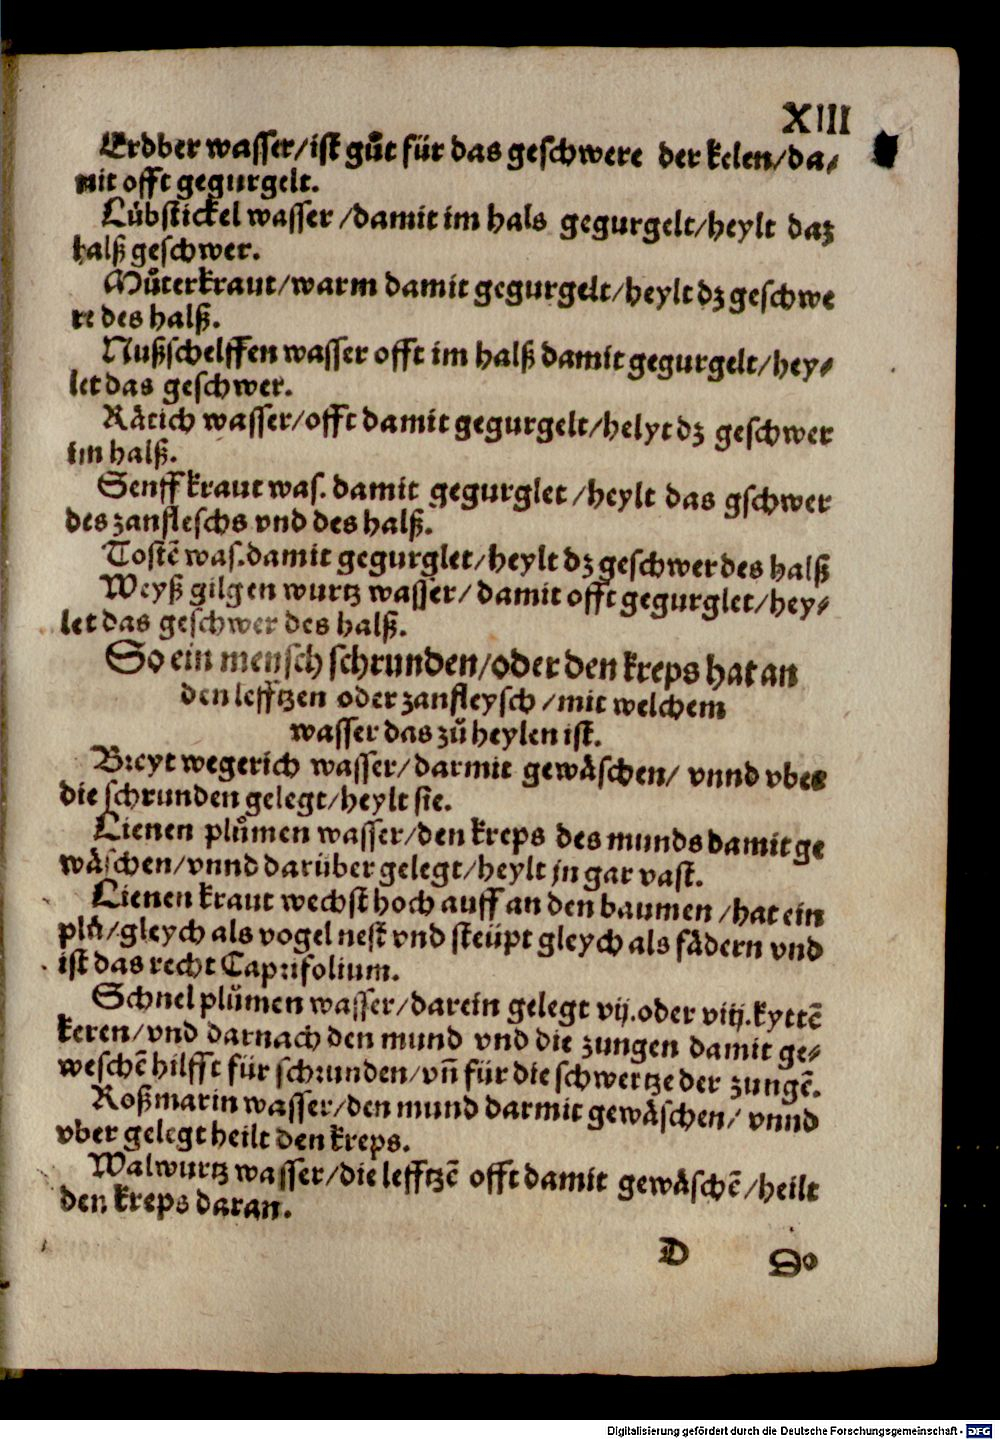 XIII
Erdber wasser/ist gůt für das geschwere der kelen/da-
mit offt gegurgelt.
Lübstickel wasser/damit im hals gegurgelt/heylt daz
halß geschwer.
Můterkraut/warm damit gegurgelt/heylt dz geschwe
re des halß.
Nußschelffen wasser offt im halß damit gegurgelt/hey-
let das geschwer.
Rätich wasser/offt damit gegurgelt/helyt dz geschwer
im halß.
Senff kraut was. damit gegurglet/heylt das gschwer
des zanfleschs vnd des halß.
Tostē was.damit gegurglet/heylt dz geschwer des halß
Weyß gilgen wurtz wasser/damit offt gegurglet/hey-
let das geschwer des halß.
So ein mensch schrunden/oder den kreps hat an
den lefftzen oder zanfleysch/mit welchem
wasser das zů heylen ist.
Breyt wegerich wasser/darmit gewäschen/ vnnd vber
die schrunden gelegt/heylt sie.
Lienen plůmen wasser/den kreps des munds damit ge
wäschen/vnnd darüber gelegt/heylt jn gar vast.
Lienen kraut wechst hoch auff an den baumen/hat ein
plå/gleych als vogel nest vnd steüpt gleych als fädern vnd
ist das recht Caprifolium.
Schnel plůmen wasser/darein gelegt vij.oder viij.kyttē
keren/vnd darnach den mund vnd die zungen damit ge-
weschē hilfft für schrunden/vñ für die schwertze der zungē.
Roßmarin wasser/den mund darmit gewäschen/ vnnd
vber gelegt heilt den kreps.
Walwurtz wasser/die lefftzē offt damit gewäschē/heilt
den kreps daran.
D So
Digitalisierung gefördert durch die Deutsche Forschungsgemeinschaft - DFG